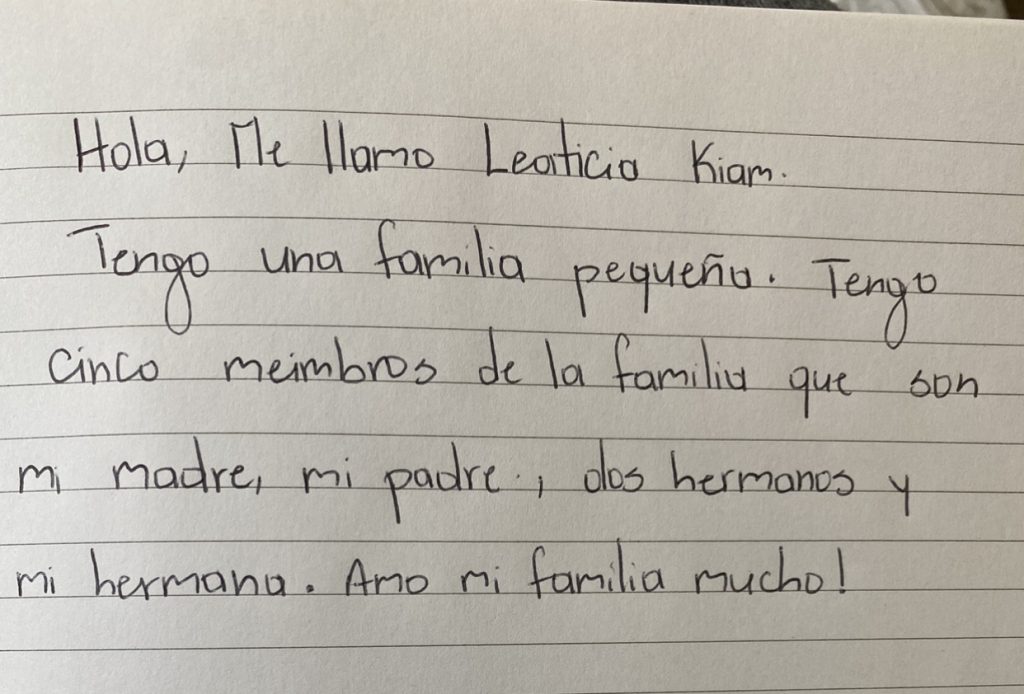 Hola, Me llamo Leaticia Kiam.
Tengo una familia pequeña. Tengo
cinco meimbros de la familia que son
mi madre, mi padre, dos hermanos y
mi hermana. Amo mi familia mucho!